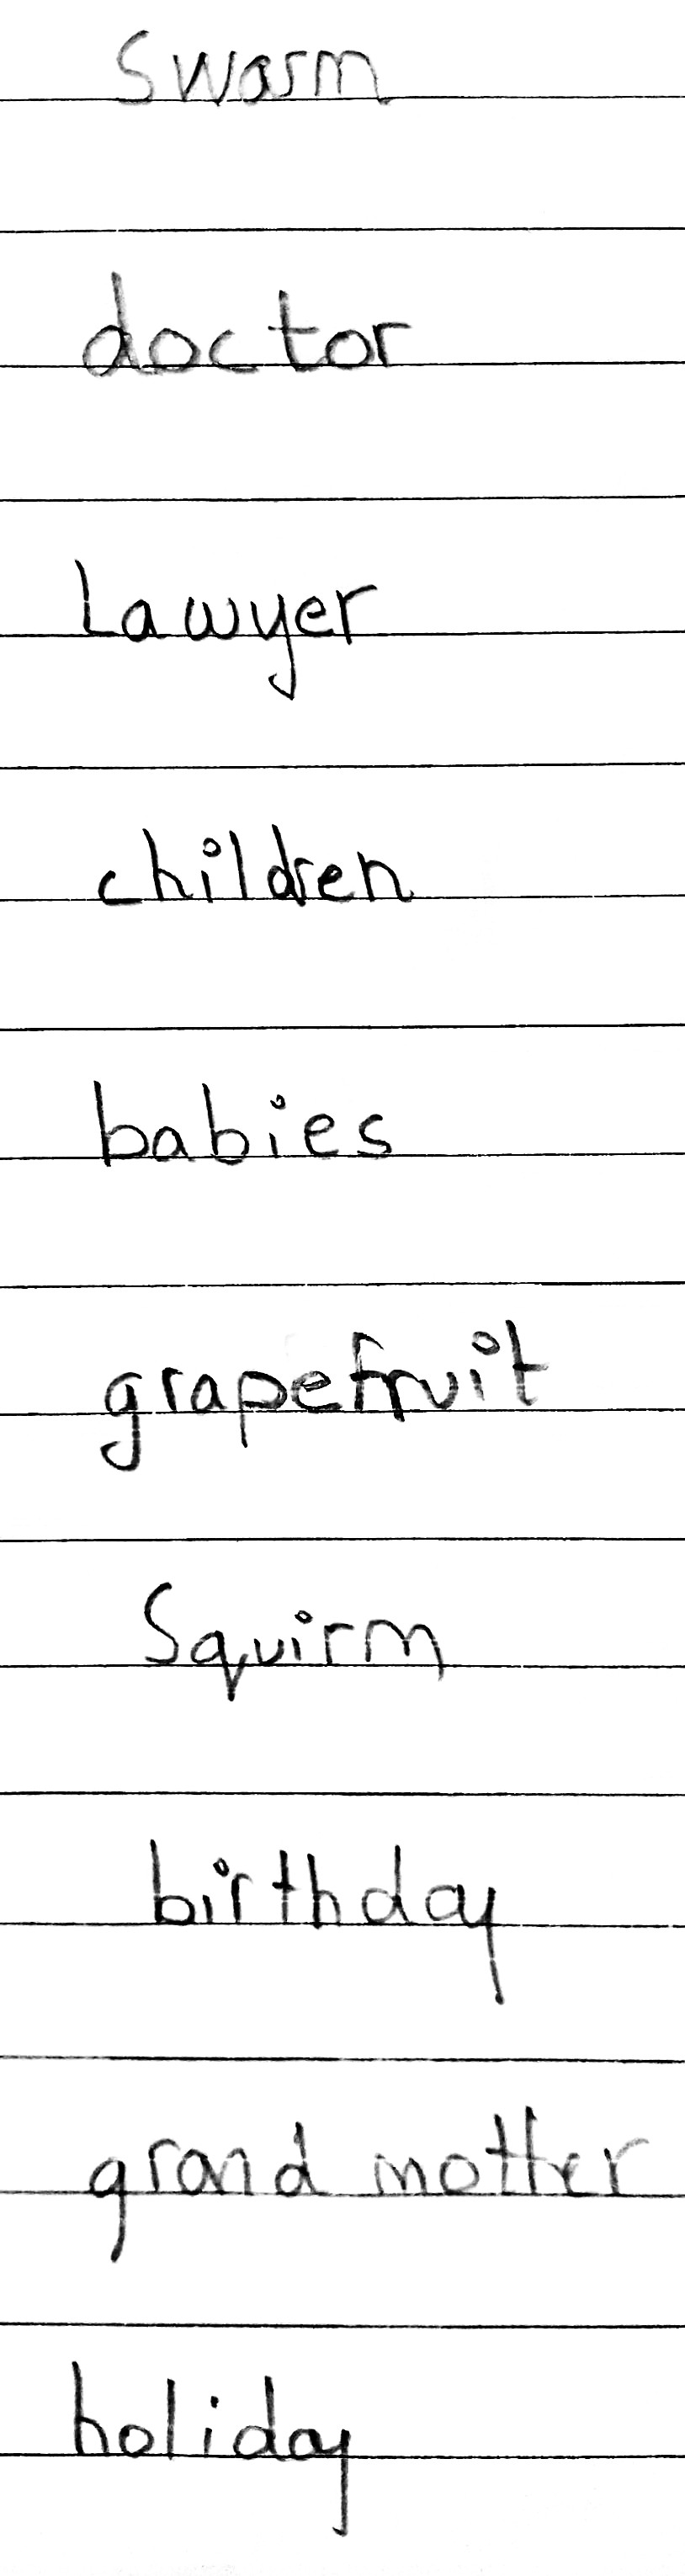 Swarm
doctor
Lawyer
children
babies
grapefruit
Squirm
birthday
grand mother
holiday